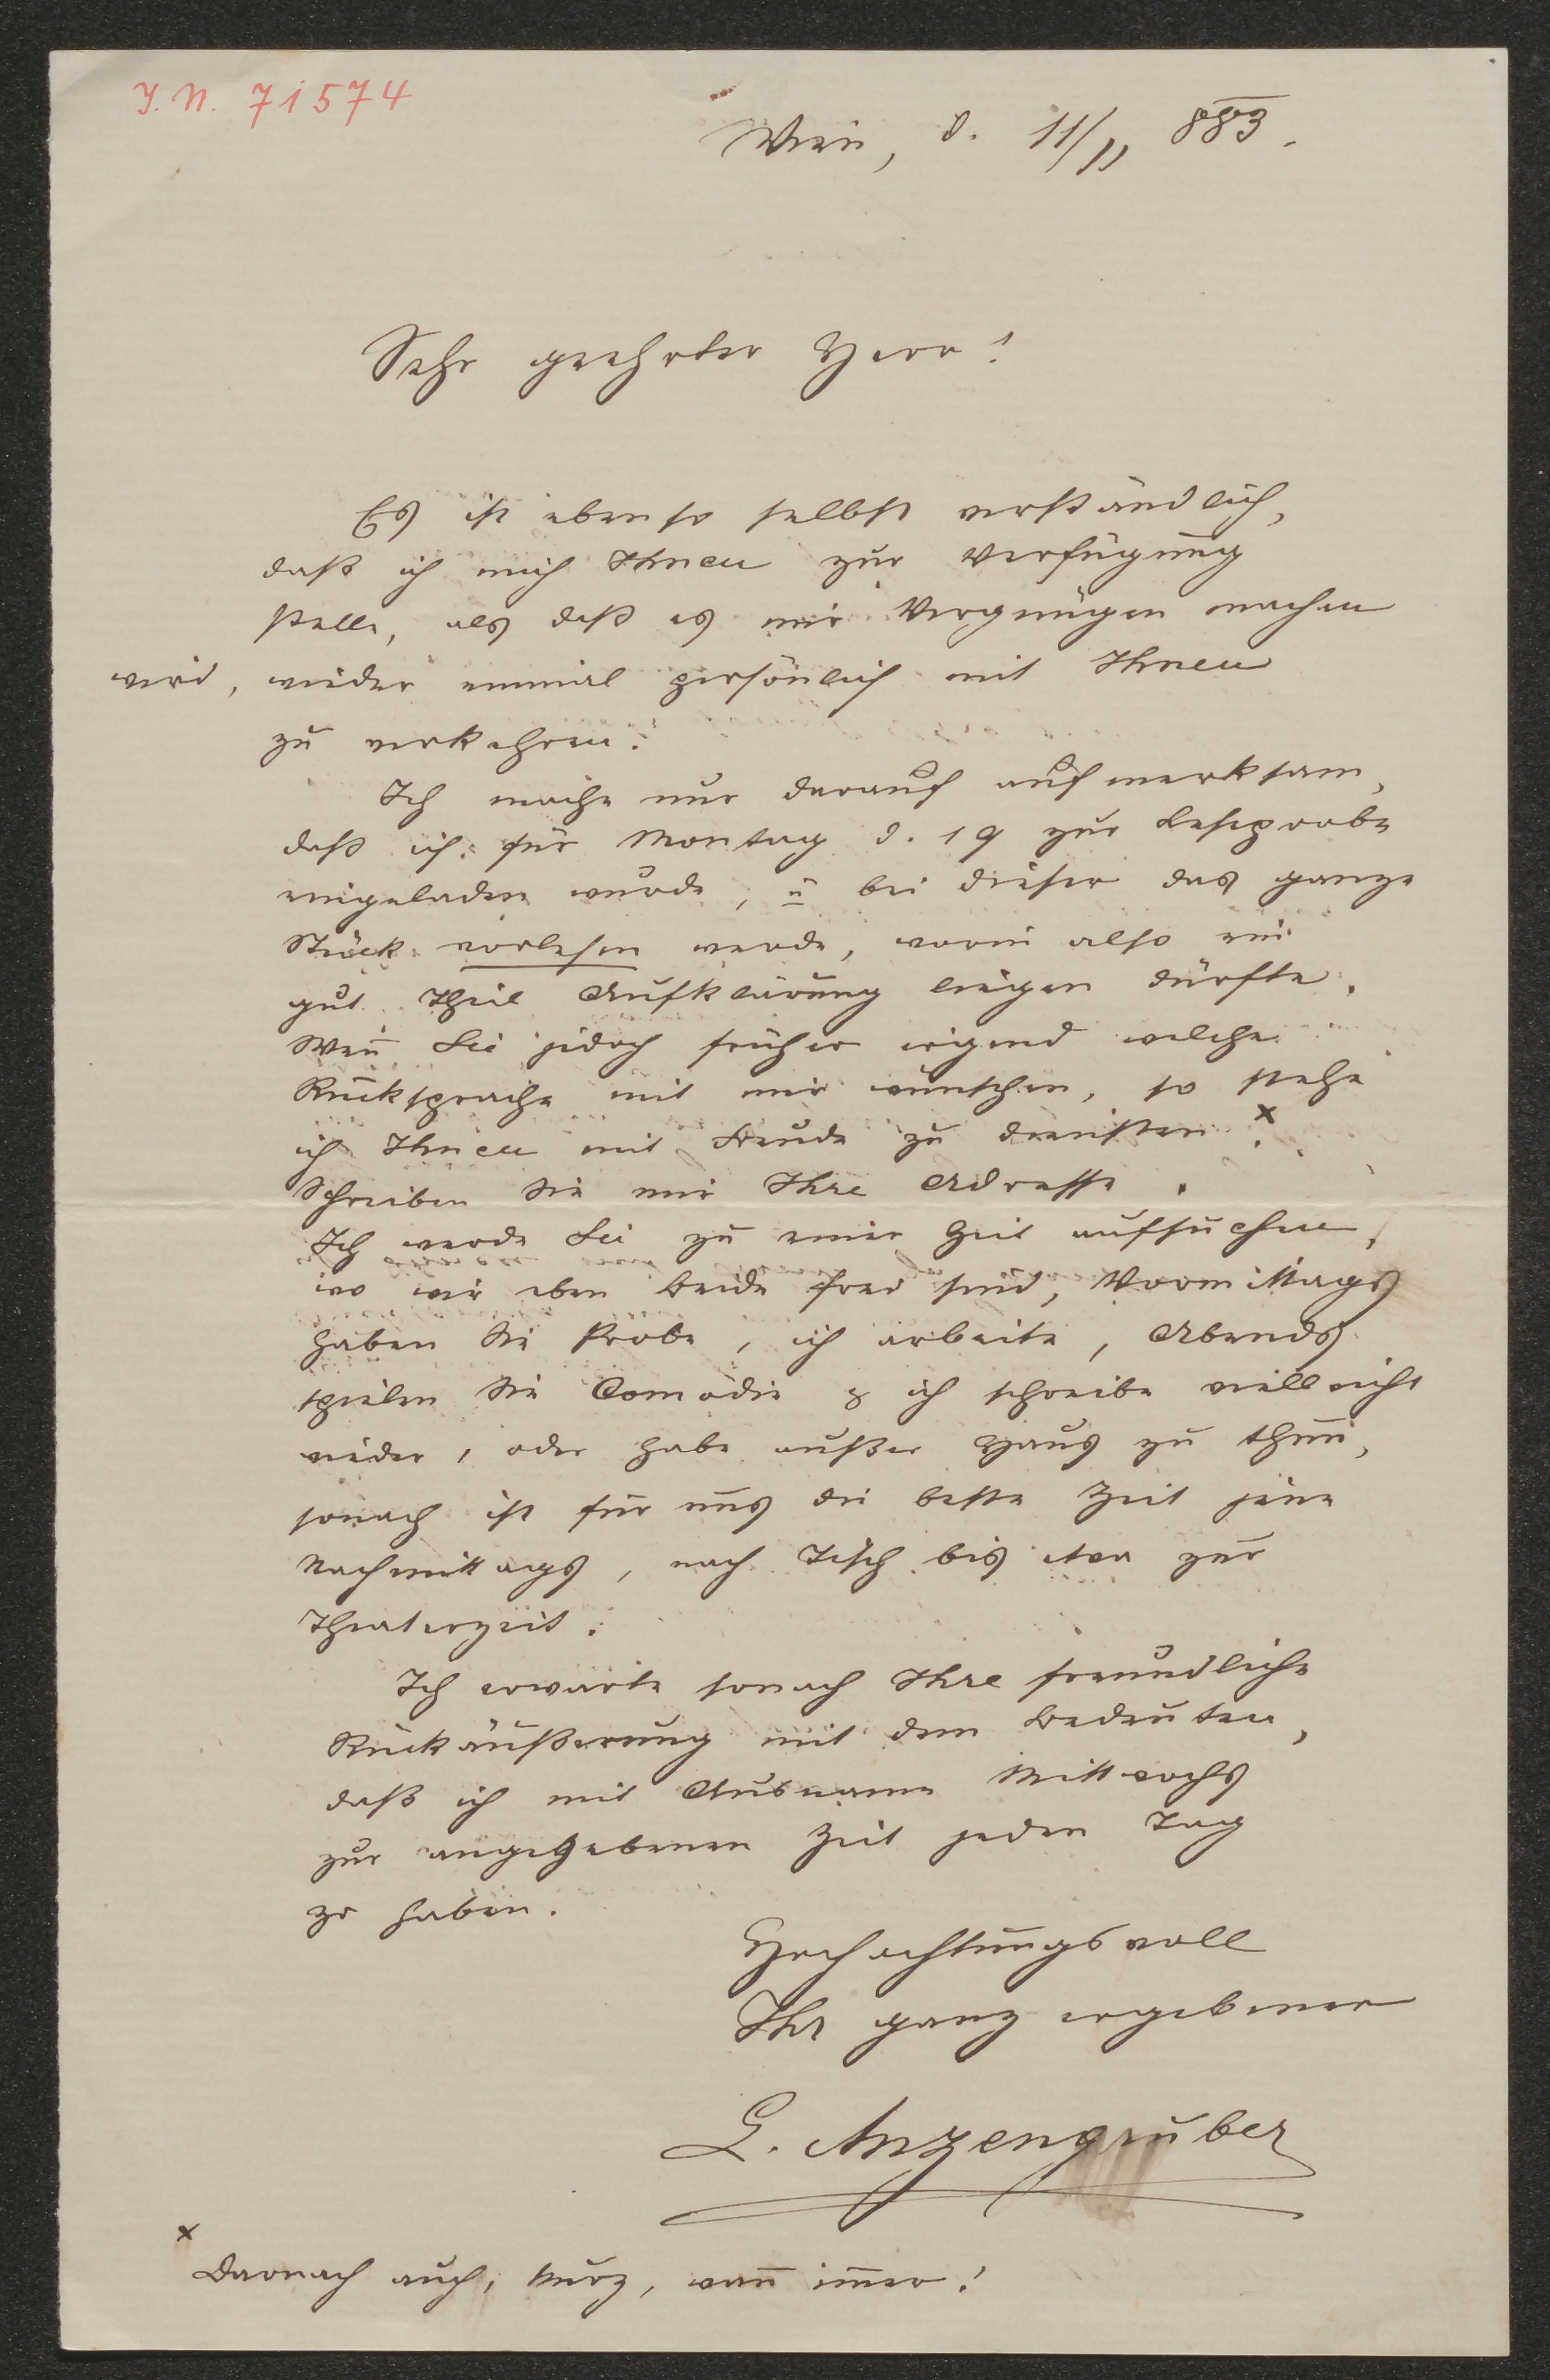 I. N. 71574
Wien, d. 11/11 883.
Sehr geehrter Herr!
Es ist ebenso selbst verständlich,
daß ich mich Ihnen zur Verfügung
stelle, als daß es mir Vergnügen machen
wird, wieder einmal persönlich mit Ihnen
zu verkehren.
Ich mache nur darauf aufmerksam,
daß ich für Montag d. 19 zur Leseprobe
eingeladen wurde, u bei dieser das ganze
Stück vorlesen werde, worin also ein
gut Theil Aufklärung liegen dürfte.
Wen̄ Sie jedoch früher irgend welche
Rücksprache mit mir wünschen, so stehe
ich Ihnen mit Freude zu diensten x.
Schreiben Sie mir Ihre Adresse.
Ich werde Sie zu einer Zeit aufsuchen,
wo wir eben beide frei sind, Vormittags
haben Sie Probe, ich arbeite, Abends
spielen Sie Comödie & ich schreibe vielleicht
wieder, oder habe außer Haus zu thun,
sonach ist für uns die beste Zeit jene
Nachmittags, nach Tisch bis etwa zur
Theaterzeit.
Ich erwarte sonach Ihre freundliche
Rückäußerung mit dem Bedeuten,
daß ich mit Ausname Mittwochs
zur angegebenen Zeit jeden Tag
zu haben.
Hochachtungsvoll
Ihr ganz ergebener
L. Anzengruber
x
Darnach auch, kurz, wan̄ im̄er!